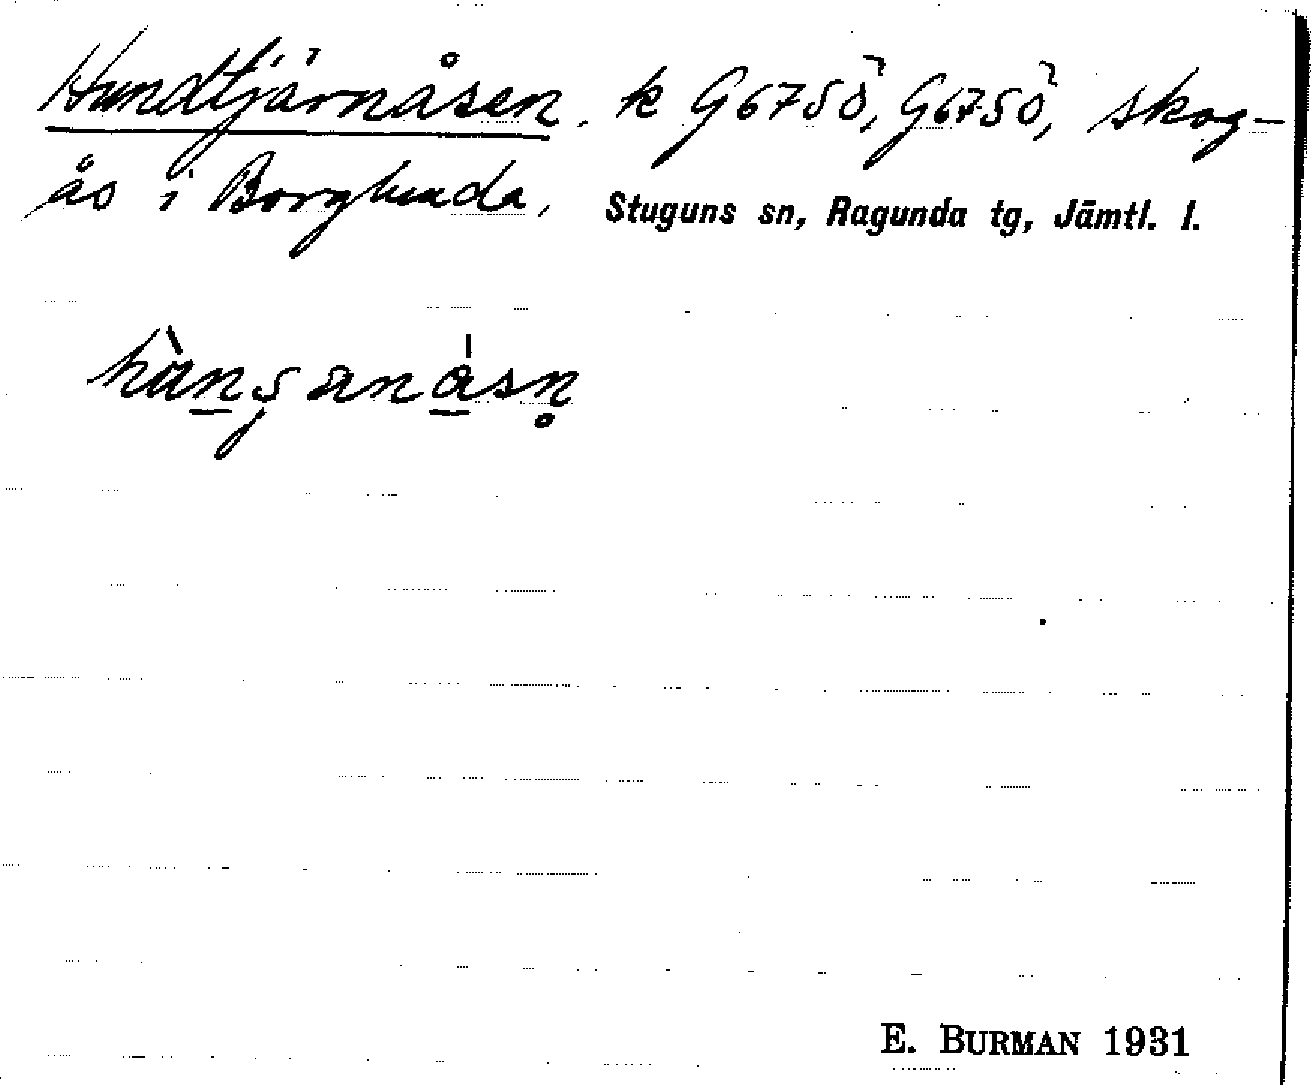 Hundtjärnåsen. k G67SÖ, G67SÖ, skog-
ås i Borglunda, Stuguns sn, Ragunda tg, Jämtl. l.
E. BURMAN 1931